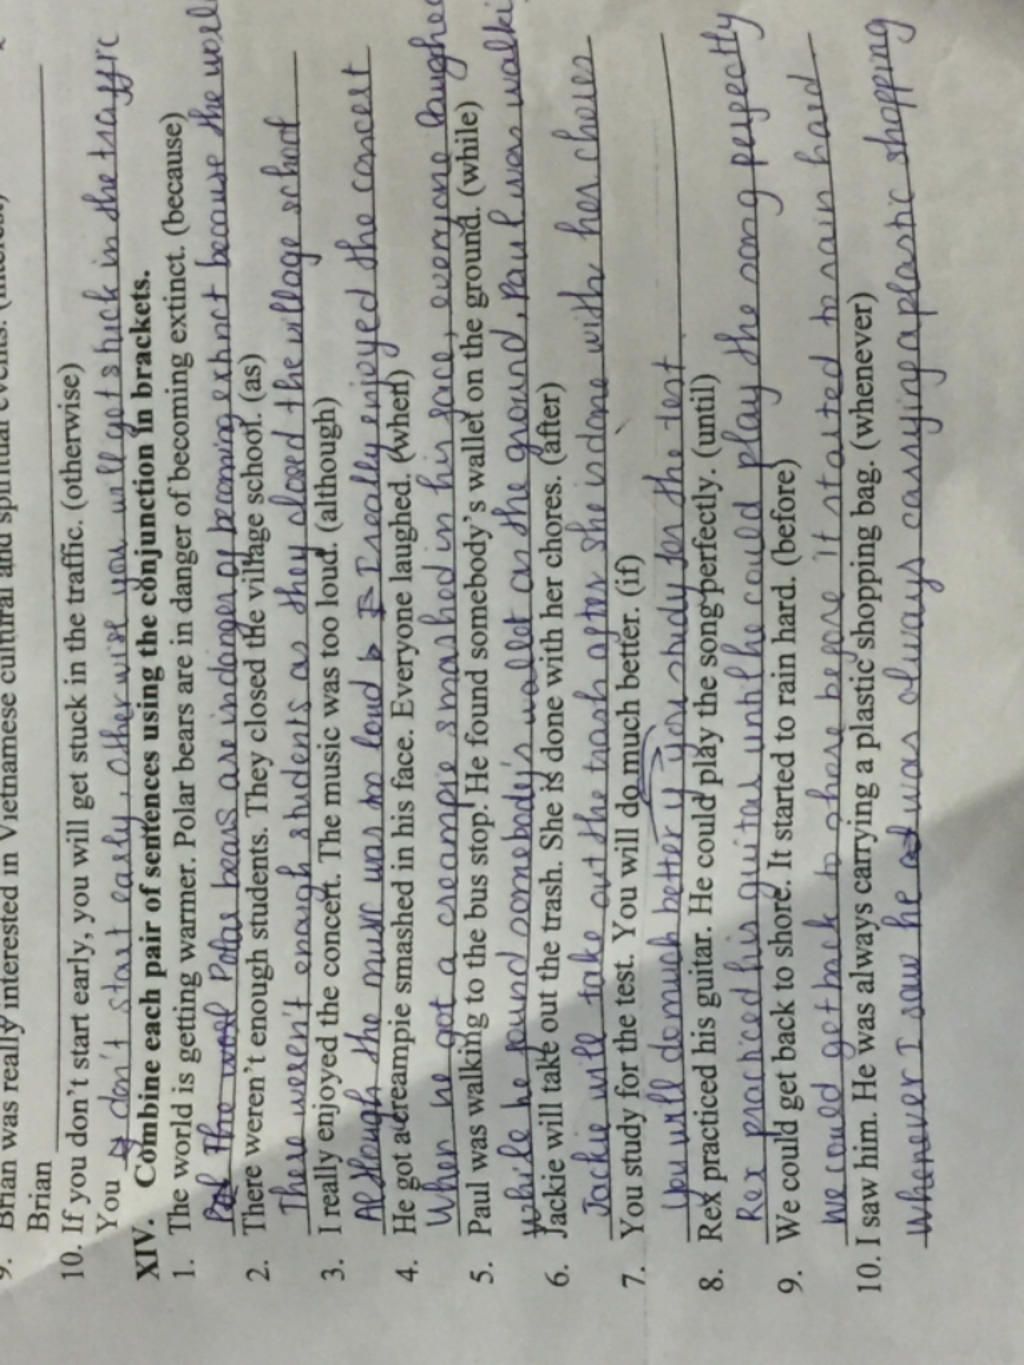 9. Brian was really interested in Vietnamese cultural and spiritual events.
Brian
10. If you don't start early, you will get stuck in the traffic. (otherwise)
You don't start early, otherwise you will get stuck in the traffic
XIV. Combine each pair of sentences using the conjunction in brackets.
1. The world is getting warmer. Polar bears are in danger of becoming extinct. (because)
Polar bears are in danger of becoming extinct because the worl
2. There weren't enough students. They closed the village school. (as)
There weren't enough students as they closed the village school
3. I really enjoyed the concert. The music was too loud. (although)
Although the music was too loud I really enjoyed the concert
4. He got a creampie smashed in his face. Everyone laughed. (when)
When he got a creampie smashed in his face, everyone laughed
5. Paul was walking to the bus stop. He found somebody's wallet on the ground. (while)
While he found somebody's wallet on the ground, Paul was walki
6. Jackie will take out the trash. She is done with her chores. (after)
Jackie will take out the trash after she is done with her chores
7. You study for the test. You will do much better. (if)
You will do much better if you study for the test
8. Rex practiced his guitar. He could play the song perfectly. (until)
Rex practiced his guitar until he could play the song perfectly
9. We could get back to shore. It started to rain hard. (before)
We could get back to shore before it started to rain hard
10. I saw him. He was always carrying a plastic shopping bag. (whenever)
Whenever I saw he was always carrying a plastic shopping